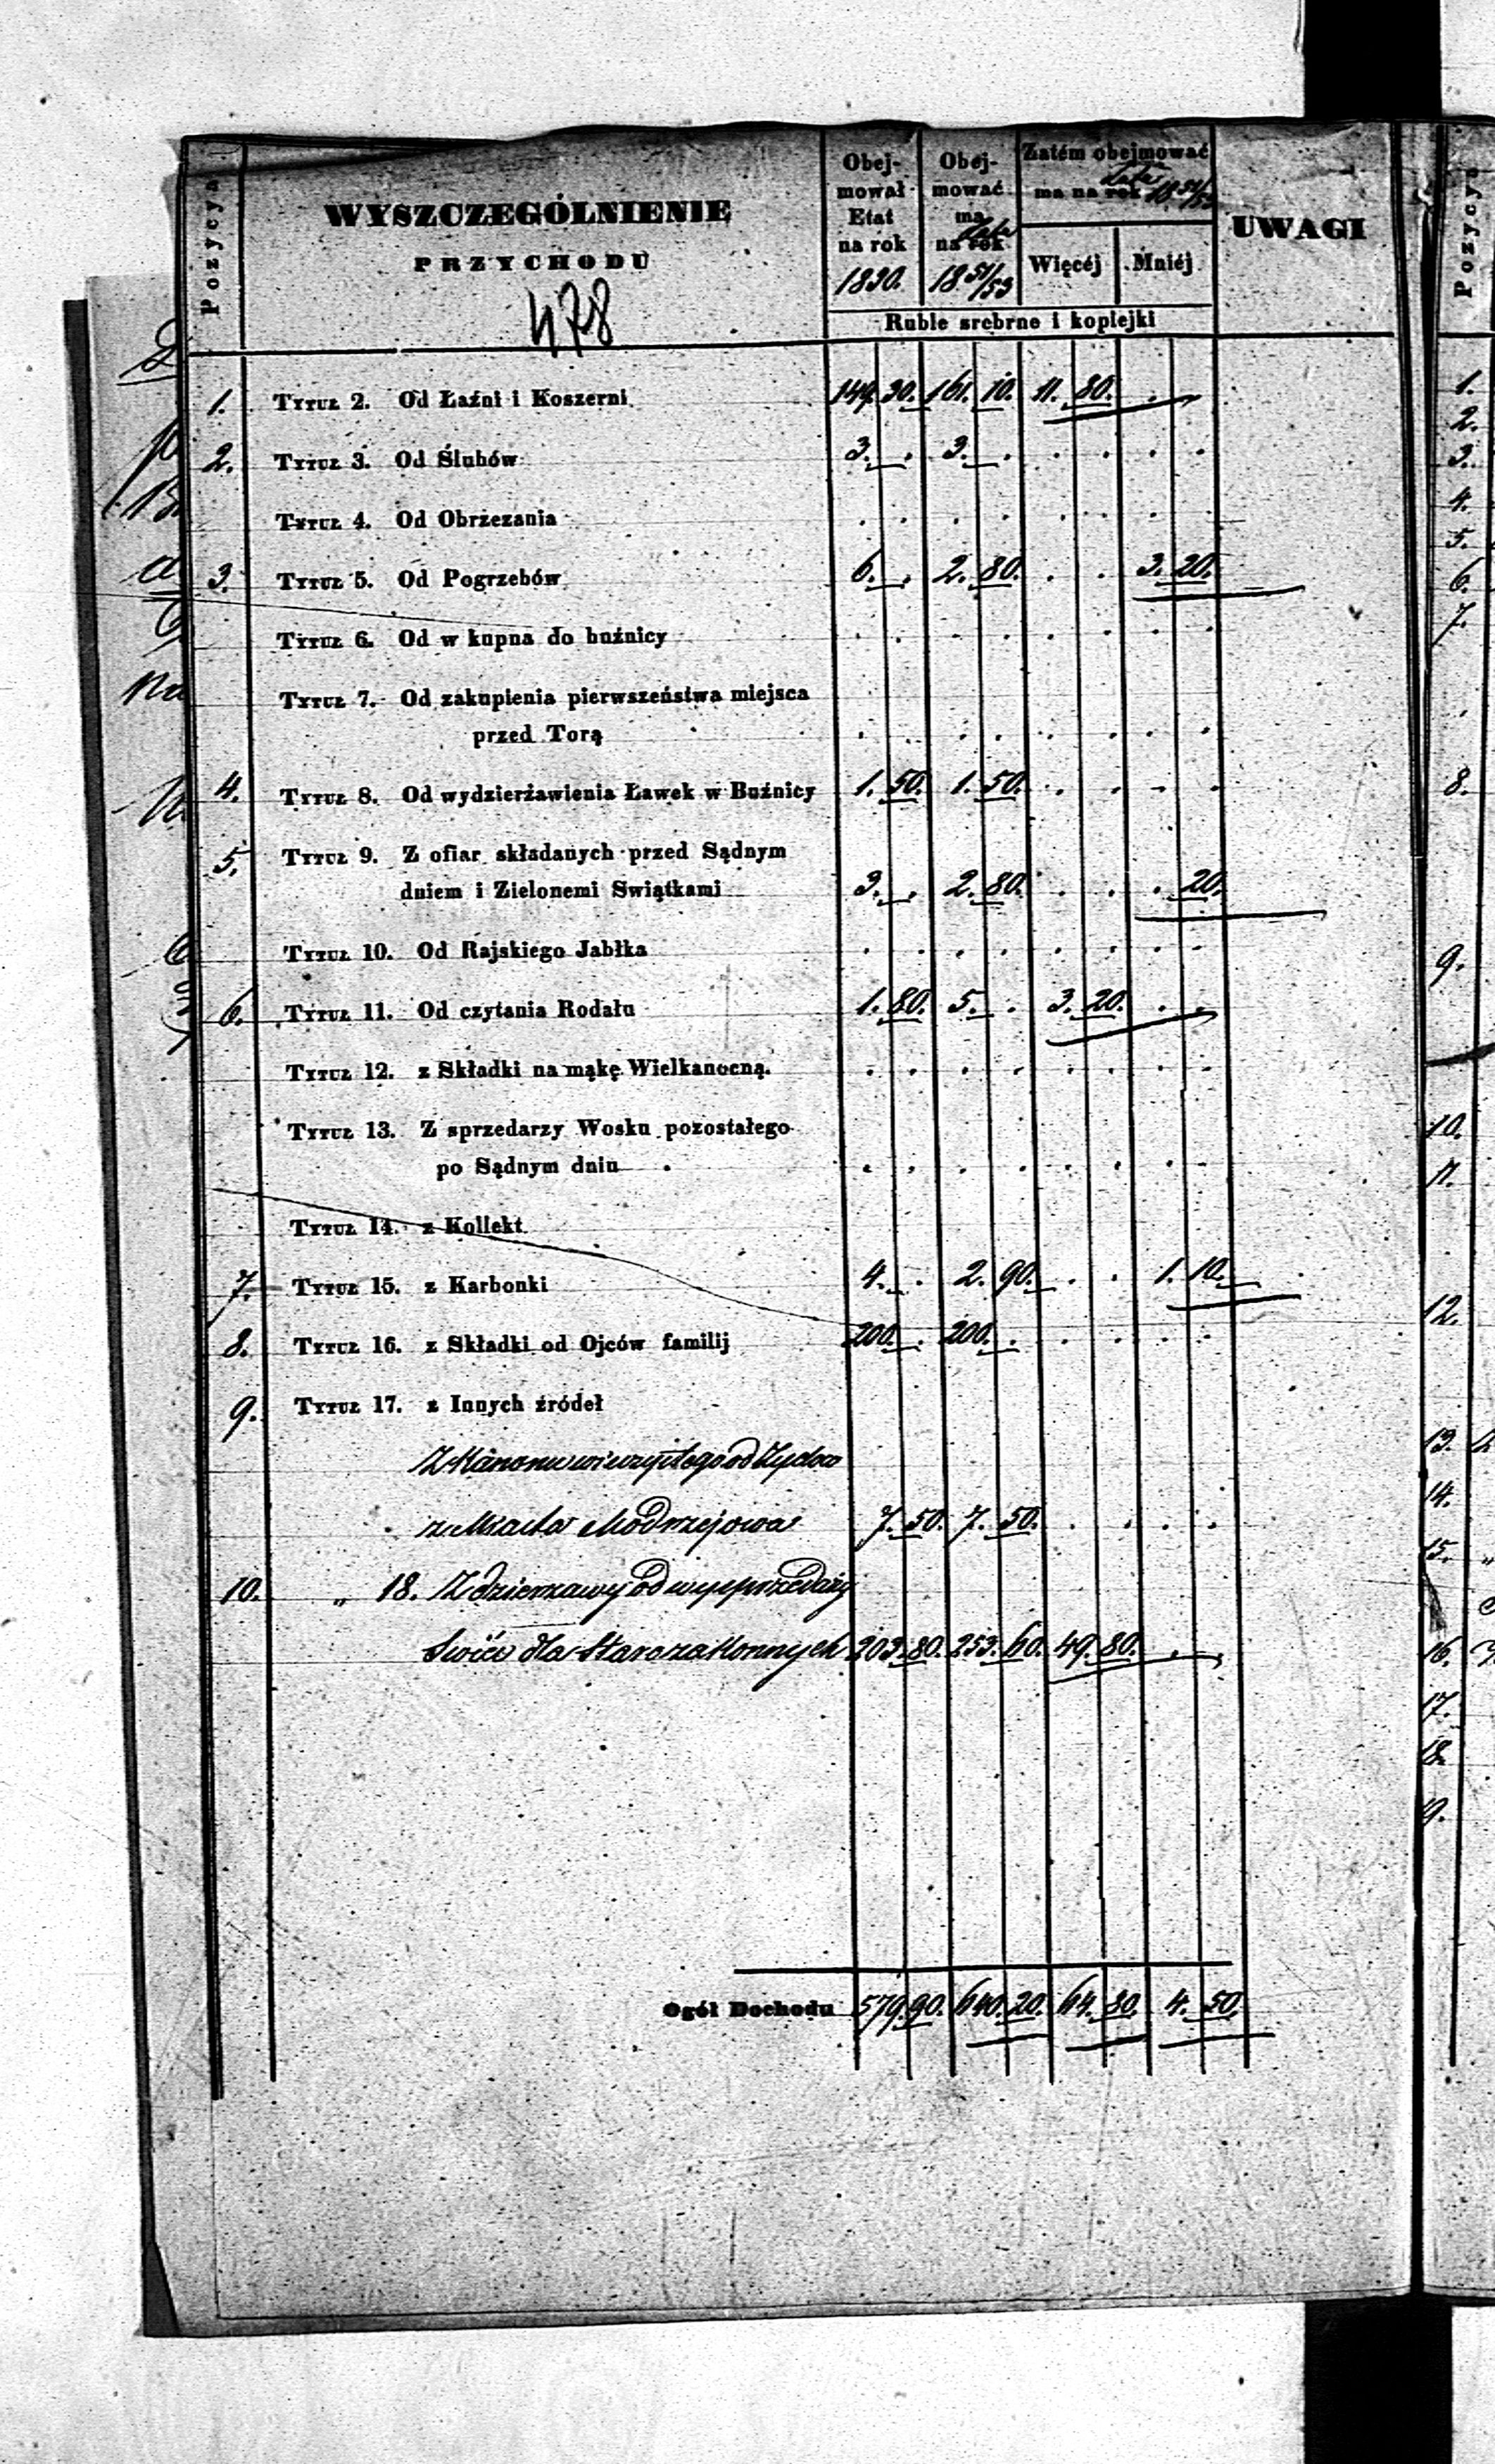 Pozycya
WYSZCZEGÓLNIENIE
PRZYCHODU
478
Obej-
mował
Etat
na rok
1830.
Obej-
mować
ma
na rok lata
18 51/53
Zatém obejmować
ma na rok lata 18 51/53
Więcéj
Mniéj
Ruble srebrne i kopiejki
UWAGI
1. Tytuł 2. Od Łaźni i Koszerni 149. 30. 161. 10. 11. 80. . .
2. Tytuł 3. Od Ślubów 3. . 3. . . . . .
Tytuł 4. Od Obrzezania . . . . . . . .
3. Tytuł 5. Od Pogrzebów 6. . 2. 80. . . 3. 20.
Tytuł 6. Od w kupna do buźnicy . . . . . . . .
Tytuł 7. Od zakupienia pierwszeństwa miejsca
przed Torą . . . . . . . .
4. Tytuł 8. Od wydzierżawienia Ławek w Buźnicy 1. 50. 1. 50. . . . .
5. Tytuł 9. Z ofiar składanych przed Sądnym
dniem i Zielonemi Swiątkami 3. . 2. 80. . . . 20.
Tytuł 10. Od Rajskiego Jabłka . . . . . . . .
6. Tytuł 11. Od czytania Rodału 1. 80. 5. . 3. 20. . .
Tytuł 12. z Składki na mąkę Wielkanocną. . . . . . . . .
Tytuł 13. Z sprzedarzy Wosku pozostałego
po Sądnym dniu . . . . . . . .
Tytuł 14. z Kollekt
7. Tytuł 15. z Karbonki 4. . 2. 90. . . 1. 10.
8. Tytuł 16. z Składki od Ojców familij 200. . 200. . . . . .
9. Tytuł 17. z Innych źródeł
Z Kanonu wieczystego od Żydów
z Miasta Modrzejowa 7. 50. 7. 50. . . . .
10. „ 18. Z dzierżawy od wysprzedaży
Swiéc dla Starozakonnych 203. 80. 253. 60. 49. 80. . .
Ogół Dochodu 579. 90. 640. 20. 64. 80. 4. 50.
Pozycya
1.
2.
3.
4.
5.
6.
7.
8.
9.
10.
11.
12.
13.
14.
15. „
16.
17.
18.
19.